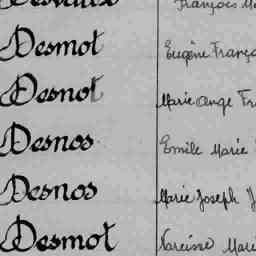 François
Desmot Eugène França
Desnot Marie Ange Fr
Desnos Emile Marie
Desnos Marie Joseph
Desmot Narcisse Mari